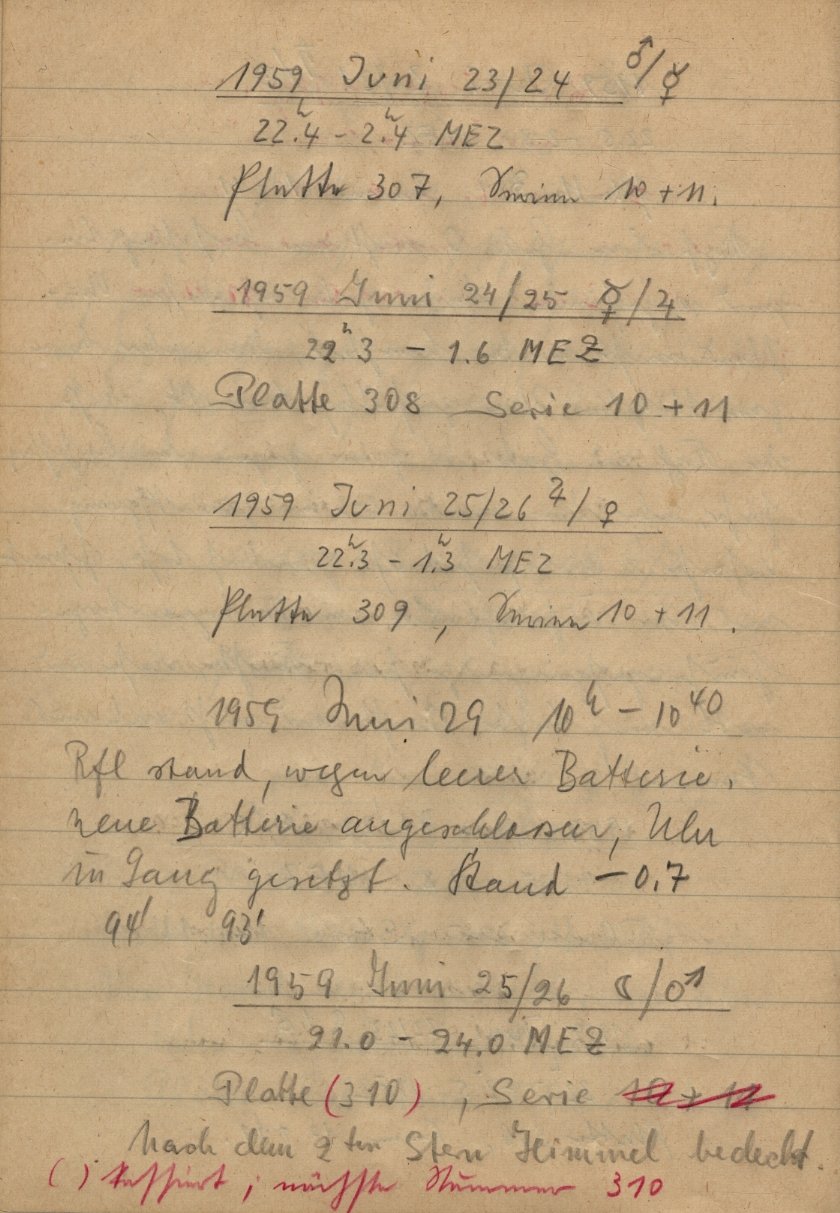 1959 Juni 23/24 ♂/☿
22ʰ.4 – 2ʰ.4 MEZ
Platte 307, Serien 10 + 11.
1959 Juni 24/25 ☿/♃
22ʰ3 – 1.6 MEZ
Platte 308 Serie 10 + 11
1959 Juni 25/26 ♃/♀
22ʰ.3 – 1ʰ.3 MEZ
Platte 309, Serien 10 + 11.
1959 Juni 29 10ʰ – 10⁴⁰
Rfl stand, wegen leerer Batterie,
neue Batterie angeschlossen, Uhr
in Gang gesetzt. Stand – 0.7
94' 93'
1959 Juni 25/26 ☾/♂
21.0 – 24.0 MEZ
Platte (310), Serie 10 + 11
Nach dem 2ten Stern Himmel bedeckt.
( ) kassiert; nächste Nummer 310